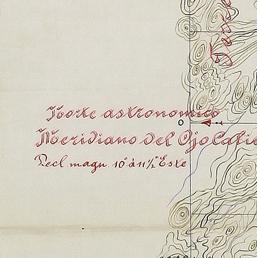 Norte astronomico
Meridiano del Ojo
Decl magn. 10° á 11½ Este